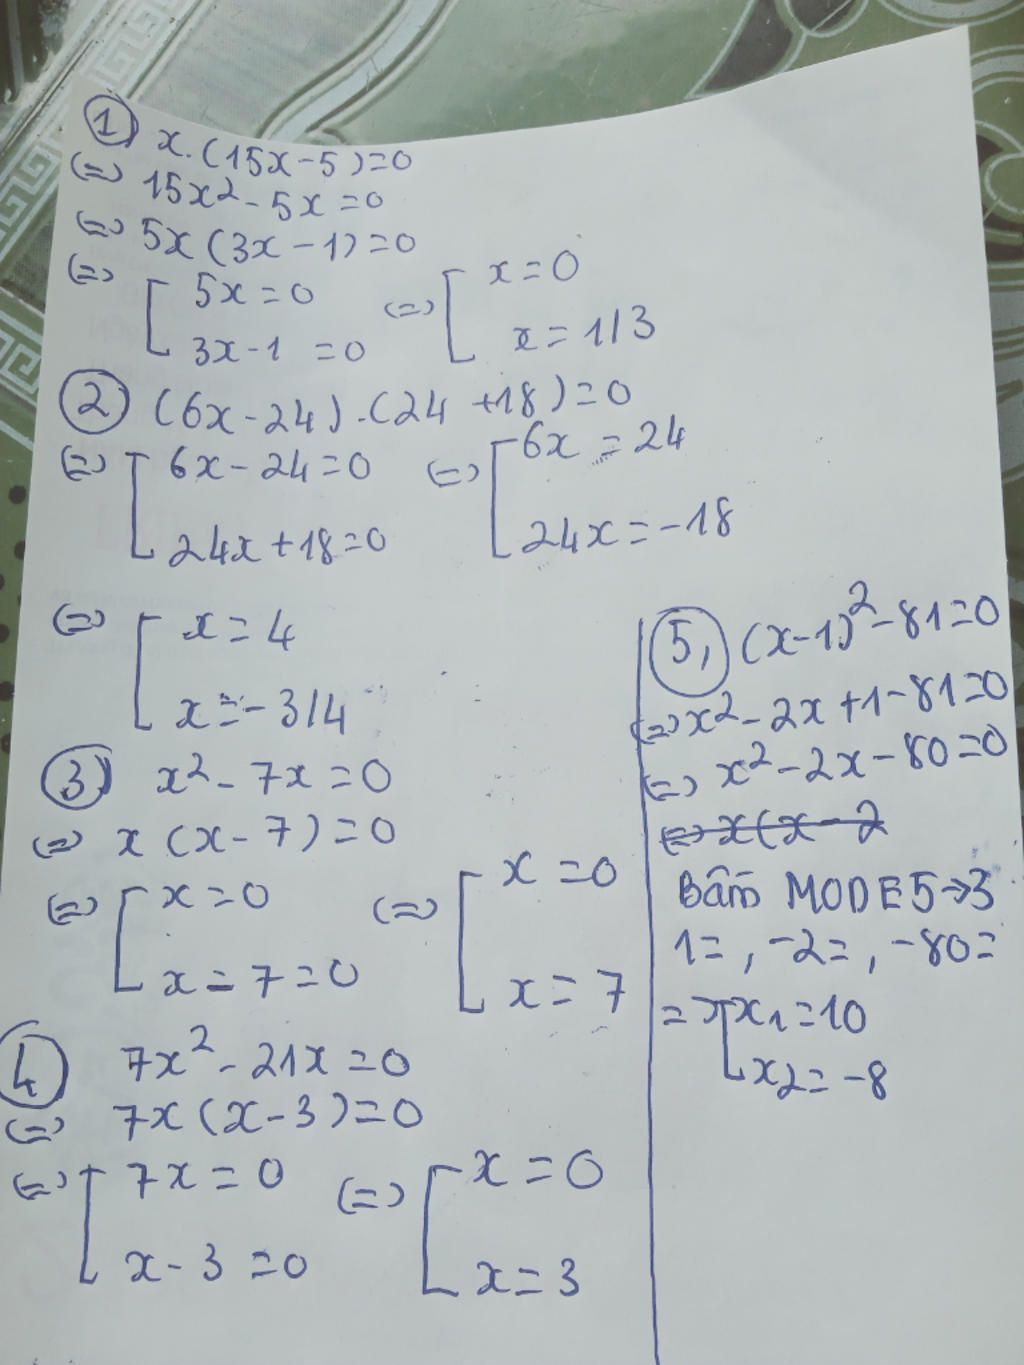 1) x.(15x-5)=0
(=) 15x²-5x=0
(=) 5x(3x-1)=0
(=) [ 5x=0 (=) [ x=0
3x-1=0 x=1/3
2) (6x-24).(24+18)=0
(=) [ 6x-24=0 (=) [ 6x=24
24x+18=0 24x=-18
(=) [ x=4
x=-3/4
3) x²-7x=0
(=) x(x-7)=0
(=) [ x=0 (=) [ x=0
x-7=0 x=7
4) 7x²-21x=0
(=) 7x(x-3)=0
(=) [ 7x=0 (=) [ x=0
x-3=0 x=3
5, (x-1)²-81=0
(=) x²-2x+1-81=0
(=) x²-2x-80=0
(=) x(x-2
Bấm MODE5->3
1=, -2=, -80=
=> [ x1=10
x2=-8